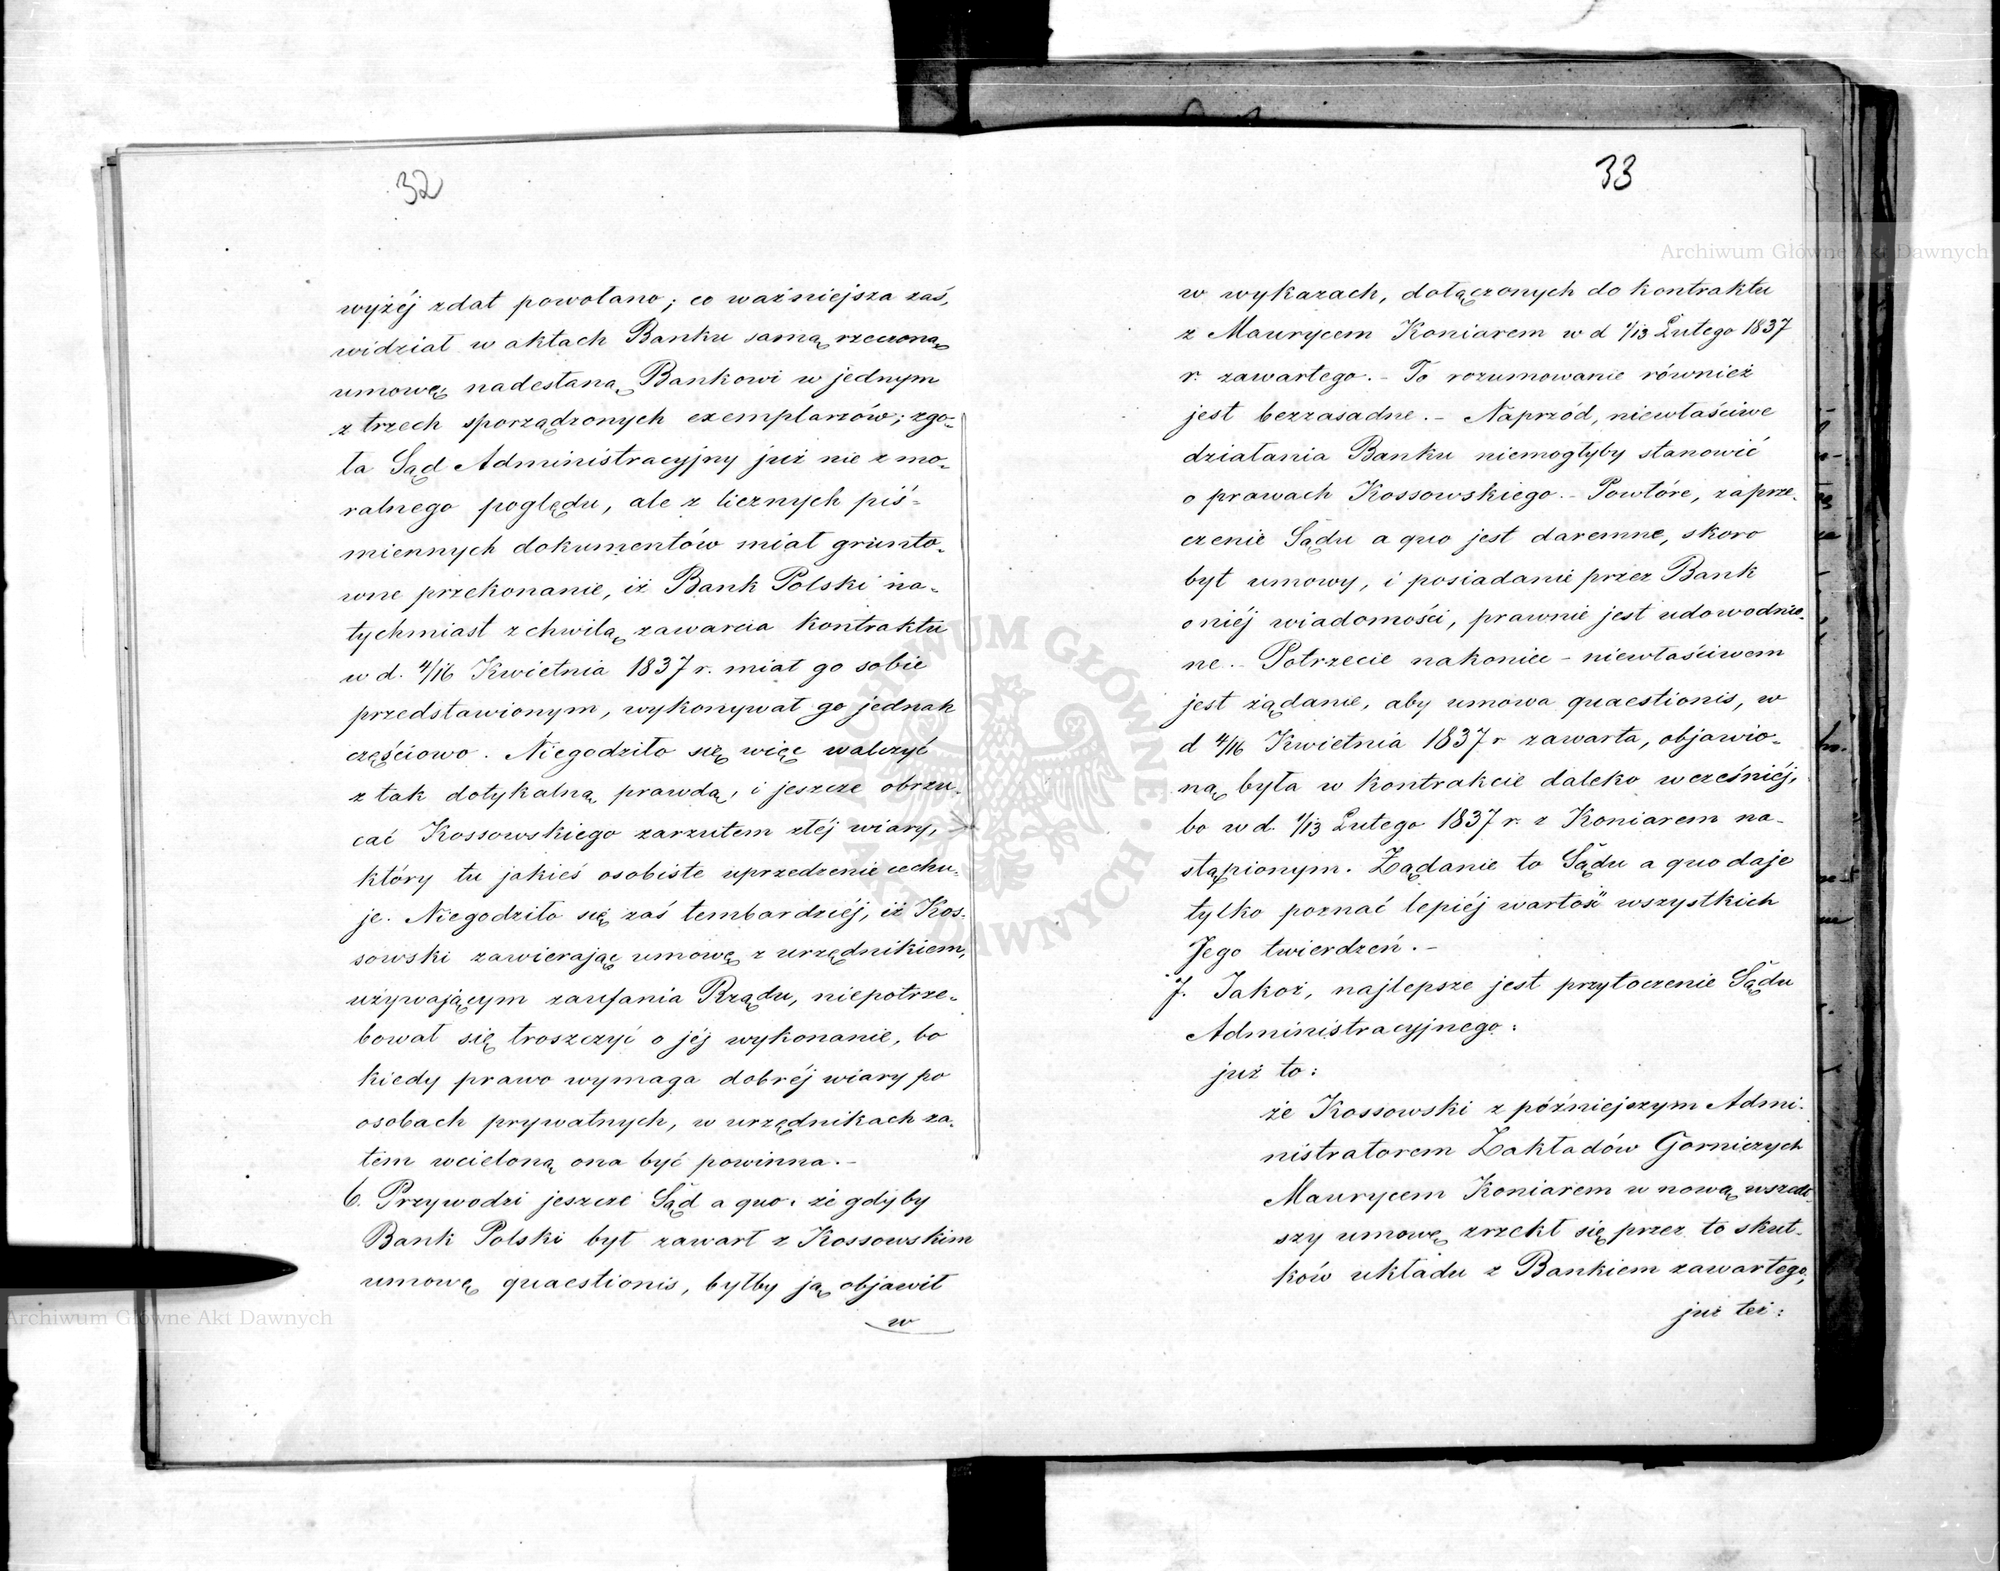 32
wyżéj zdał powołano; co ważniejsza zaś,
widział w aktach Banku samą rzeczoną
umowę nadesłaną Bankowi w jednym
z trzech sporządzonych exemplarzów; zgo-
ła Sąd Administracyjny już nie z mo-
ralnego poględu, ale z licznych piś-
miennych dokumentów miał grunto-
wne przekonanie, iż Bank Polski na-
tychmiast z chwilą zawarcia kontraktu
w d. 4/16 Kwietnia 1837 r. miał go sobie
przedstawionym, wykonywał go jednak
częściowo. Niegodziło się więc walczyć
z tak dotykalną prawdą, i jeszcze obrzu-
cać Kossowskiego zarzutem złéj wiary,
który tu jakieś osobiste uprzedzenie cechu-
je. Niegodziło się zaś tembardziéj, iż Kos-
sowski zawierając umowę z urzędnikiem,
używającym zaufania Rządu, niepotrze-
bował się troszczyć o jéj wykonanie, bo
kiedy prawo wymaga dobréj wiary po
osobach prywatnych, w urzędnikach za-
tém wcieloną ona być powinna.-
6. Przywodzi jeszcze Sąd a quo: że gdyby
Bank Polski był zawarł z Kossowskim
umowę quaestionis, byłby ją objawił
w
33
w wykazach, dołączonych do kontraktu
z Maurycem Koniarem w d 1/13 Lutego 1837
r. zawartego.- To rozumowanie również
jest bezzasadne.- Naprzód, niewłaściwe
działania Banku niemogłyby stanowić
o prawach Kossowskiego.- Powtóre, zaprze-
czenie Sądu a quo jest daremne, skoro
byt umowy, i posiadanie przez Bank
o niéj wiadomości, prawnie jest udowodnio-
ne.- Potrzecie nakoniec - niewłaściwem
jest żądanie, aby umowa quaestionis, w
d 4/16 Kwietnia 1837 r zawarta, objawio-
ną była w kontrakcie daleko wcześniéj,
bo w d. 1/13 Lutego 1837 r. z Koniarem na-
stąpionym. Żądanie to Sądu a quo daje
tylko poznać lepiéj wartość wszystkich
Jego twierdzeń.-
7. Jakoż, najlepsze jest przytoczenie Sądu
Administracyjnego:
już to:
że Kossowski z późniejszym Admi-
nistratorem Zakładów Gorniczych
Maurycem Koniarem w nową wszedł-
szy umowę zrzekł się przez to skut-
ków układu z Bankiem zawartego,
już też:
Archiwum Główne Akt Dawnych
Archiwum Główne Akt Dawnych
ARCHIWUM GŁÓWNE AKT DAWNYCH